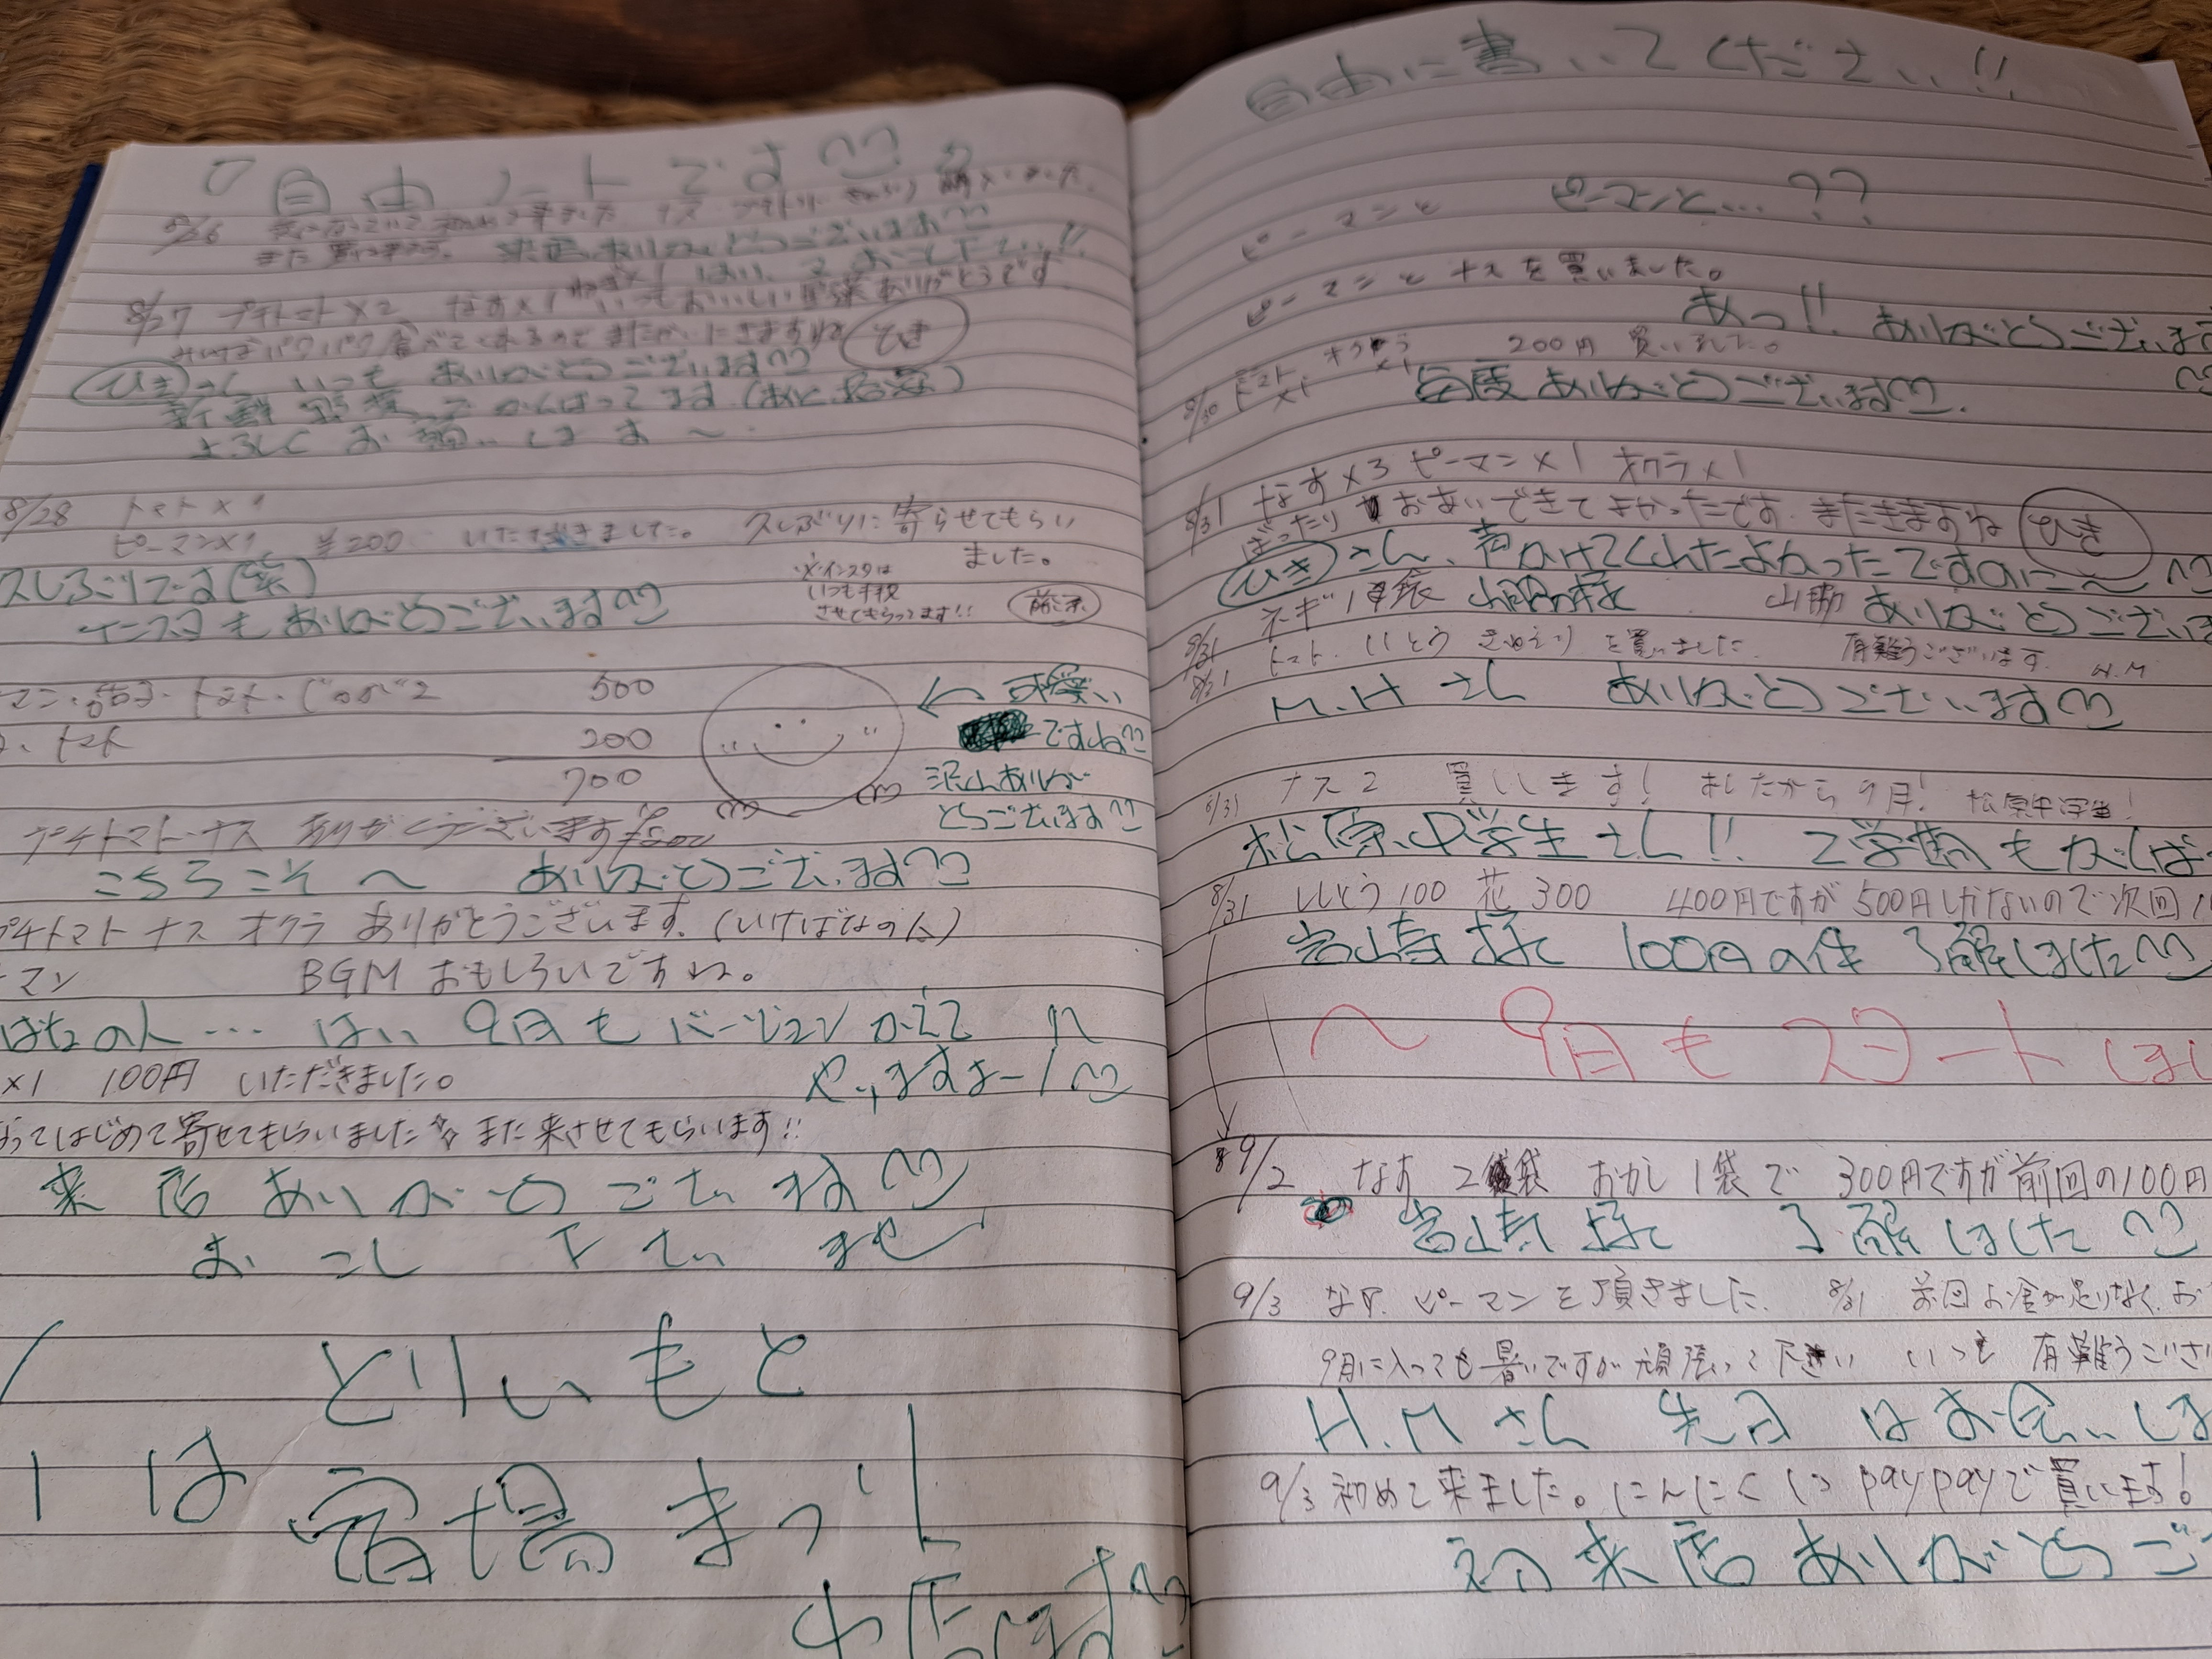 自由ノートです
8/26 気になっていて初めて来ました ナス プチトマト きゅうり 購入しました。
また買いに来ます。 来店ありがとうございます
はい またおこし下さい!!
8/27 プチトマト×2 なす×1 ねぎ×1 いつもおいしい野菜ありがとうです
パクパク食べてくれるので またかいにきますね ひき
ひきさん いつも ありがとうございます
新鮮野菜で がんばってます(あと、接客)
よろしくお願いしま〜
8/28 トマト×1
ピーマン×1 ¥200 いただきました。 久しぶりに寄らせてもらい
ました。
※インスタは
いつも拝見
させてもらってます!!
久しぶりです(笑)
インスタもありがとうございます
マン・茄子・トマト・じゃが2 500
、トマト 200
700
← 可愛い
ですね
沢山ありが
とうございます
プチトマト・ナス ありがとうございます
こちらこそ〜 ありがとうございます
プチトマト ナス オクラ ありがとうございます。(いけばなの人)
ーマン BGMおもしろいですね。
ばなの人… はい 9月もバージョンかえて
やりますよー!
×1 100円 いただきました。
なってはじめて寄せてもらいました☆ また来させてもらいます!!
来店ありがとうございます
おこし下さいませ
とりいもと
は 宿場まつり
出店します
自由に書いてください!!
ピーマンと ピーマンと…??
ピーマンとナスを買いました。
あっ!! ありがとうございます
8/30 トマト×1 オクラ×1 200円 買いました。
毎度ありがとうございます。
8/31 なす×3 ピーマン×1 オクラ×1
ばったり おあいできてよかったです。またきますね ひき
ひきさん、声かけてくれたよかったですのに〜
8/31 ネギ1袋 山脇様 山脇 ありがとうござい
8/31 トマト、ししとう きゅうりを買いました 有難うございます。 H.M
M.Hさん ありがとうございます
8/31 ナス2 買いします! あしたから9月! 松原中学生!
松原中学生さん!! 2学期もがんば
8/31 ししとう100 花300 400円ですが500円しかないので次回
宮崎様 100円の件 了解しました
〜9月もスタートしまし
9/2 なす2袋 おかし1袋で 300円ですが前回の100円
宮崎様 了解しました
9/3 なす、ピーマンを頂きました。 8/31 前回お金が足りなく、お
9月に入っても暑いですが頑張って下さい いつも 有難うござい
H.Mさん 先日はお会いしま
9/3 初めて来ました。にんにく1つpaypayで買います!
初来店ありがとうご